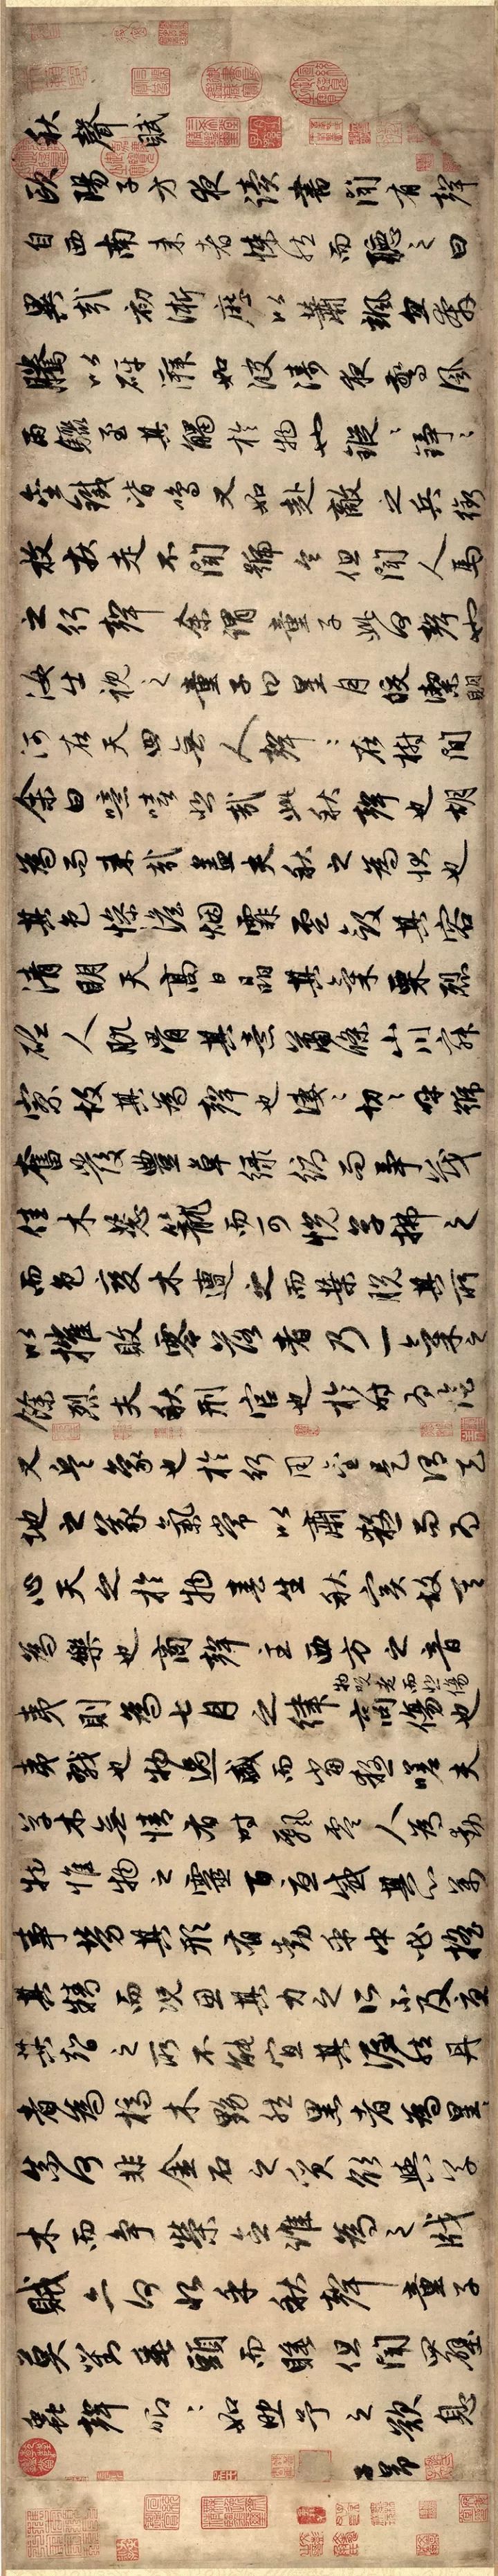 秋聲賦
歐陽子方夜讀書聞有聲
自西南來者悚然而聽之曰
異哉初淅瀝以蕭颯忽奔
騰以砰湃如波濤夜驚風
雨驟至其觸於物也鏦々錚々
金鐵皆鳴又如赴敵之兵銜
枚疾走不聞號令但聞人馬
之行聲余謂童子此何聲也
汝出視之童子曰星月皎潔明
河在天四無人聲々在樹間
余曰噫嘻悲哉此秋聲也胡
為而來哉蓋夫秋之為狀也
其色慘澹烟霏雲斂其容
清明天高日晶其氣栗烈
砭人肌骨其意蕭條山川寂
寥故其為聲也淒々切々呼號
奮發豐草綠縟而爭茂
佳木葱籠而可悅草拂之
而色變木遭之而葉脫其所
以摧敗零落者乃一氣之
餘烈夫秋刑官也於時為陰
又兵象也於行用金是謂天
地之義氣常以肅殺而為
心天之於物春生秋實故其
為樂也商聲主西方之音
物既老而悲傷
夷則為七月之律商傷也
夷戮也物過盛而當殺嗟夫
草木無情有時飄零人為動
物惟物之靈百憂感其心萬
事勞其形有動乎中必搖
其精而況思其力之所不及憂
其智之所不能宜其渥然丹
者為槁木黟然黑者為星々
奈何非金石之質欲與草
木而爭榮念誰為之戕
賊亦何恨乎秋聲童子
莫對垂頭而睡但聞四壁
蟲聲唧々如助予之歎息
子昂